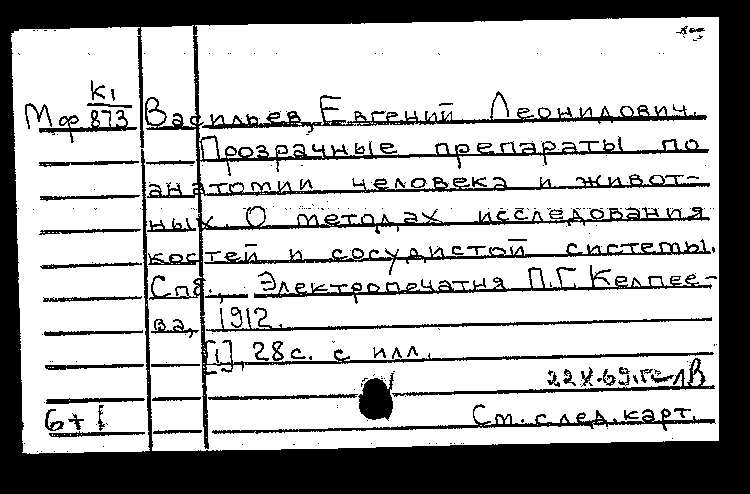 К1
Мф 873 Васильев, Евгений Леонидович.
Прозрачные препараты по
анатомии человека и живот-
ных. О методах исследования
костей и сосудистой системы.
Спб., Электропечатня П.Г. Келпее-
ва, 1912.
[1], 28 с. с илл.
См. след. карт.